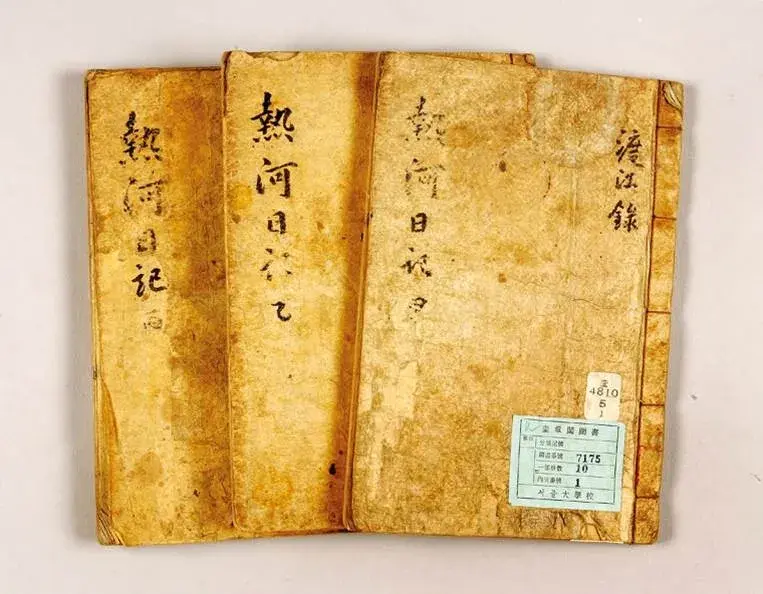 熱河日記 丙
熱河日記 乙
熱河日記 甲
渡江錄
4810
5
1
奎章閣圖書
分類記號
圖書番號 7175
一部冊數 10
內災番號 1
서울大學校